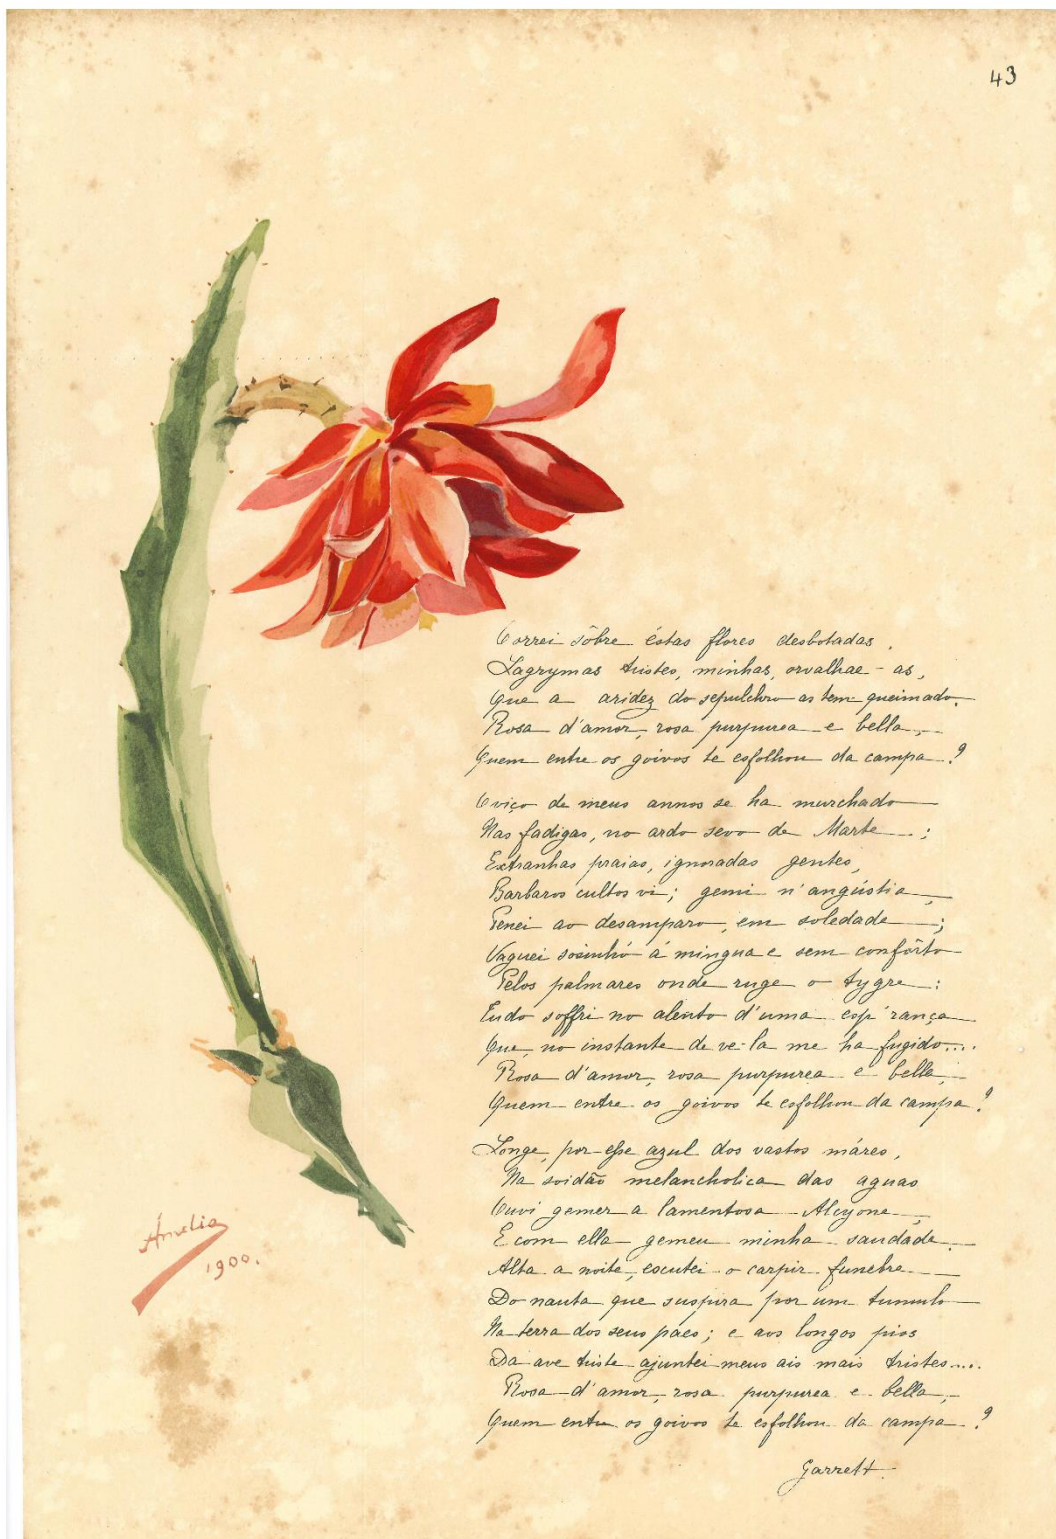 43
Correi sôbre éstas flores desbotadas,
Lagrymas tristes, minhas, orvalhae-as,
Que a aridez do sepulchro as tem queimado.
Rosa d'amor, rosa purpurea e bella,
Quem entre os goivos te esfolhou da campa?
O viço de meus annos se ha murchado
Nas fadigas, no ardo sevo de Marte;
Extranhas praias, ignoradas gentes,
Barbaros cultos vi; gemi n'angústia,
Penei ao desamparo, em soledade;
Vaguei sósinho á mingua e sem confôrto
Pelos palmares onde ruge o tygre:
Tudo soffri no alento d'uma esp'rança
Que, no instante de ve-la me ha fugido....
Rosa d'amor, rosa purpurea e bella,
Quem entre os goivos te esfolhou da campa?
Longe, por esse azul dos vastos máres,
Na soidão melancholica das aguas
Ouvi gemer a lamentosa Alcyone,
E com ella gemeu minha saudade.
Alta a noite, escutei o carpir funebre
Do nauta que suspira por um tumulo
Na terra dos seus paes; e aos longos pios
Da ave triste ajuntei meus ais mais tristes....
Rosa d'amor, rosa purpurea e bella,
Quem entre os goivos te esfolhou da campa?
Garrett
Amelia
1900.